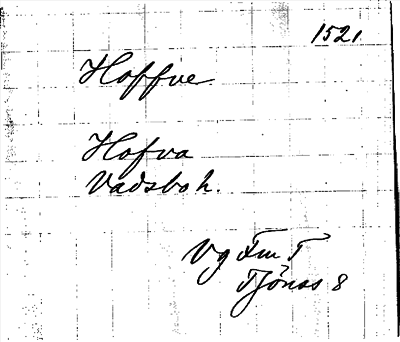 1521.
Hoffve
Hofva
Vadsbo h.
Vg Fm T
Tjönss 8